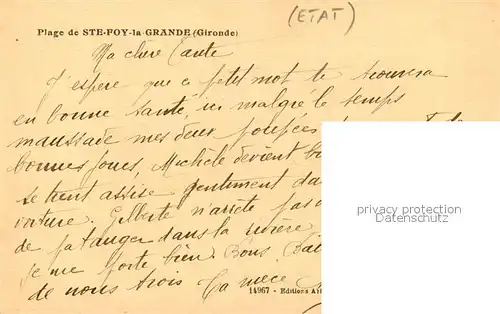 (ETAT)
Plage de STE-FOY-la-GRANDE (Gironde)
Ma chère Tante
J'espère que ce petit mot te trouvera
en bonne santé, ici malgré le temps
maussade mes deux poupées
bonnes joues, Michèle devient
se tient assise gentiment
voiture. Gilberte n'arrête pas
de patauger dans la rivière
je me porte bien. Bons
de nous trois Ta nièce
14967 - Editions
privacy protection